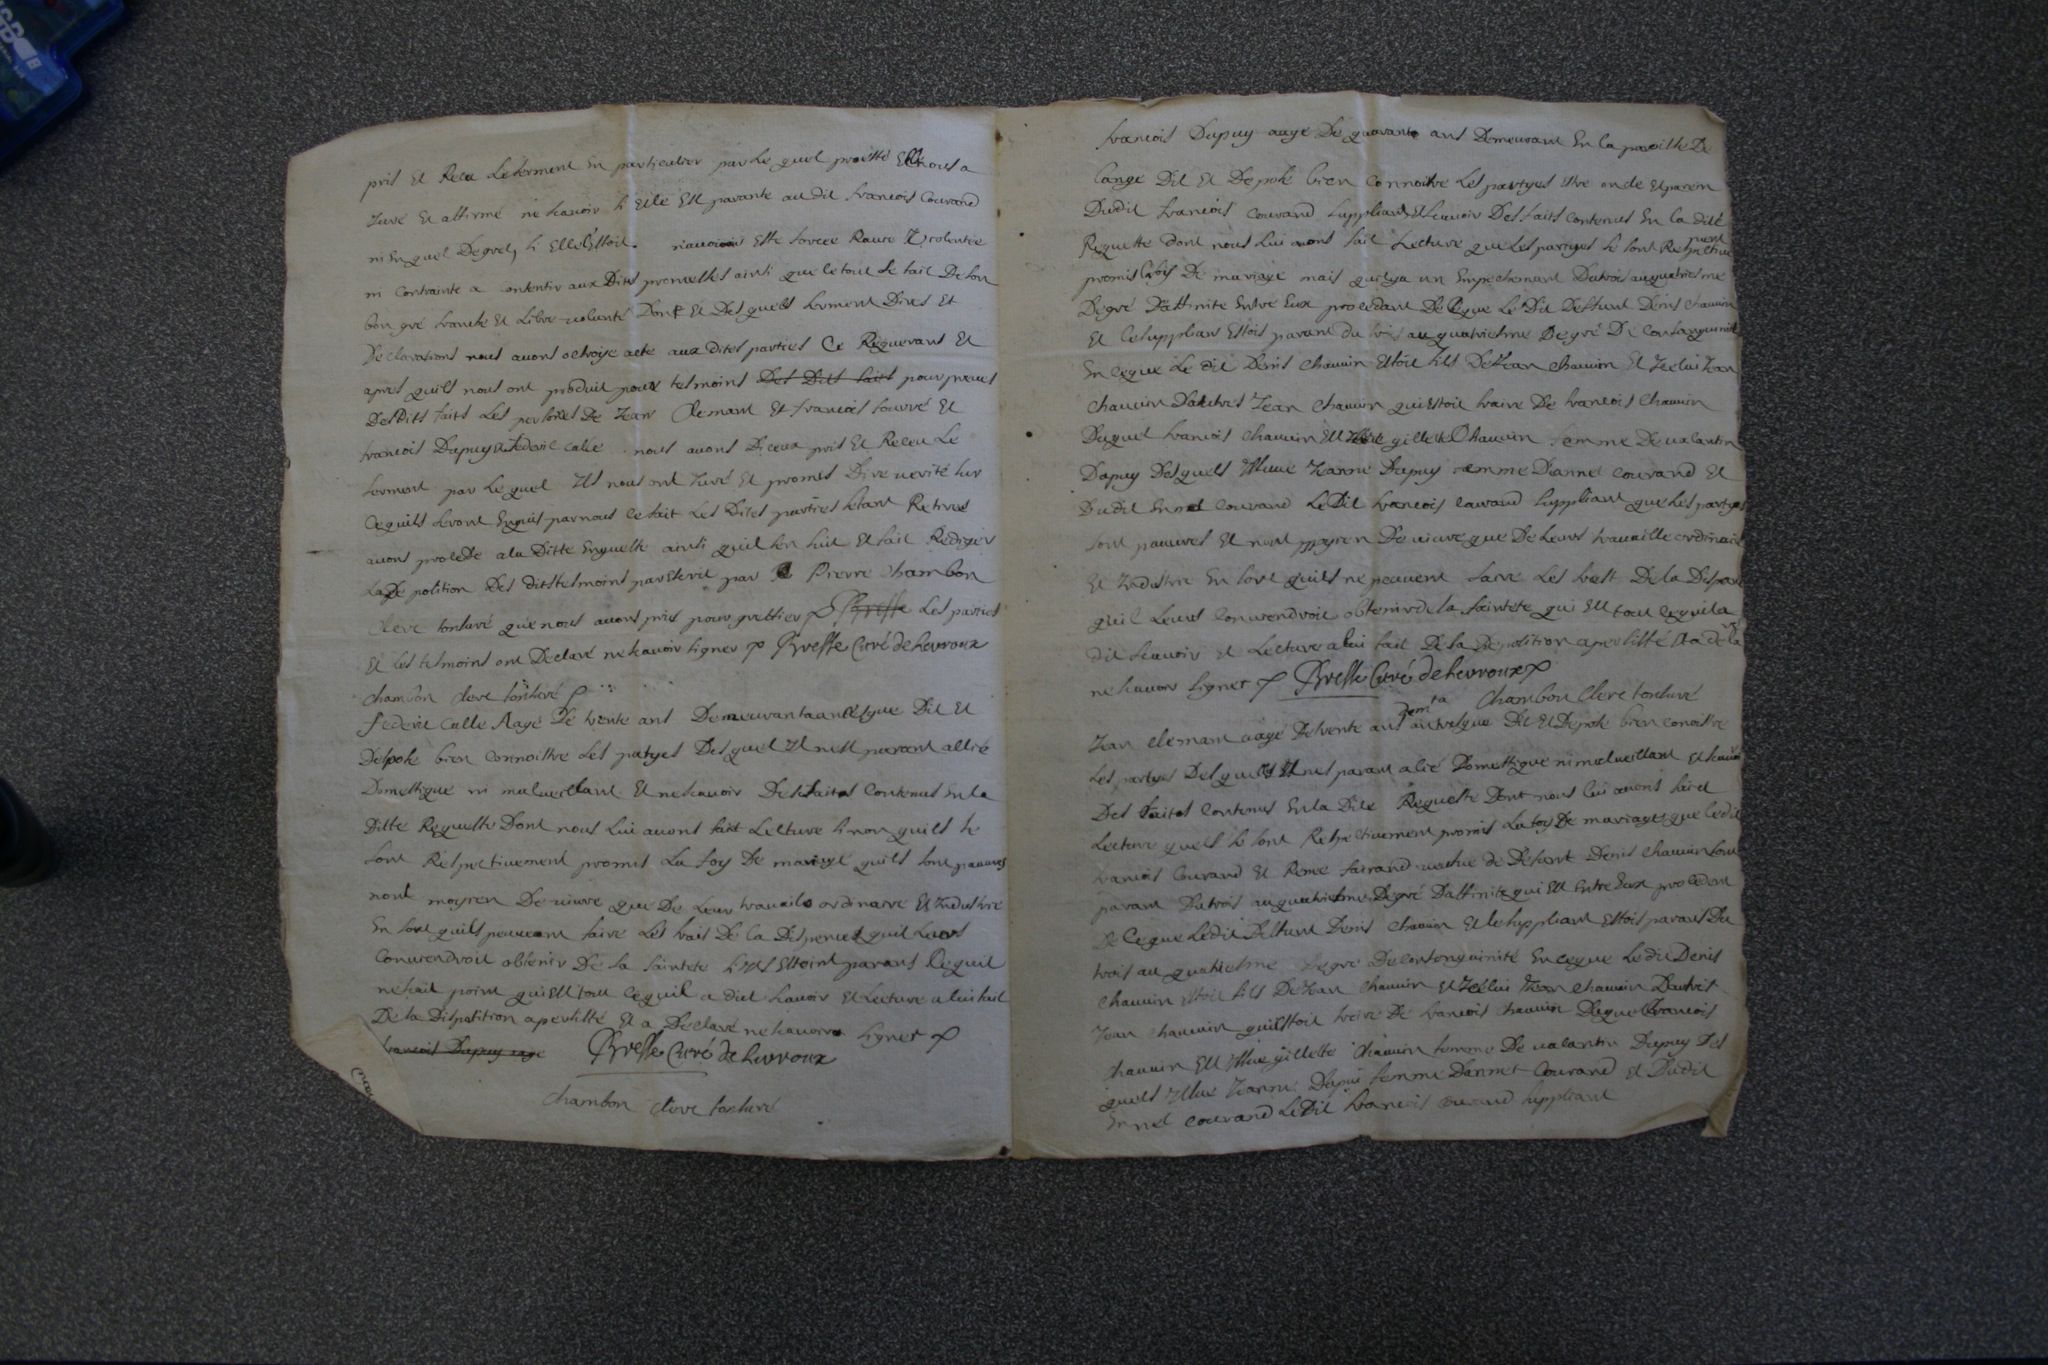 pris Et Receu Leserment En particulier par Le quel presté Elle nous a
Juré Et affirmé nescauoir si Elle Est parante audit francois Courand
ni En quel Degrés si Elle l'Estoit. n'auoir Esté forcee Rauie Violentée
ni Contrainte a Consentir aux Dites promesses ainsi que le tout se fait De son
bon gré franche Et Libre uolunté Dont Et Des quels serment Dires Et
Declarations nous auons octroyé acte aux Dites parties Ce Requerans Et
apres quils nous ont produit pour tesmoins Des Dits faits pour preuue
Desdits faits Les persones De Jean Clemant Et francois souuré Et
francois Dupuy Et federic Calle nous auons Diceux pris Et Receu Le
serment par Le quel Ils nous ont Juré Et promis Dire uerité sur
Cequils seront Enquis par nous Ce fait Les Dites parties s'etant Retirees
auons procedé a la Ditte Enqueste ainsi quil sen suit Et fait Rediger
La De position Des dits tesmoins par Escrit par Pierre Chambon
Clerc tonsuré que nous auons pris pour greffier Bresse Les parties
Et Les tesmoins ont Declaré nescauoir signer Bresse Curé de Leuroux
Chambon Clerc tonsuré
federic Calle Aagé De trente ans Demeurant a Dit Et
Depose bien Connoistre Les partyes Desquel Il nest parant allié
Domestique ni malueillant Et nescauoir Des faits Contenus En la
Ditte Requeste Dont nous Lui auons fait Lecture sinon quils se
sont Respectiuement promis La foy De mariage quils sont pauures
nont moyen De uiure que De Leur trauail ordinaire Et Industrie
En sorte quils peuuent faire Les frais De la Dispence quil Leurs
Conuiendroit obtenir De sa sainteté sils Estoint parans Cequil
nesait point qui Est tout Cequil a dit scauoir Et Lecture a lui fait
De sa Disposition a persisté Et a Declaré nescauoir signer
francois Dupuy aagé Bresse Curé de Leuroux
Chambon Clerc tonsuré
francois Dupuy aagé De quarante ans Demeurant En la paroisse De
Langé Dit Et Depose bien Connoitre Les partyes Estre oncle Et paren
Dudit francois Courand suppliant Et scauoir Des faits Contenus En la dite
Requeste dont nous Lui auons fait Lecture que Les partyes se sont Respectiuement
promis La foi De mariage mais quil y a un Empechemant Du trois au quatriesme
Degré D'affinité Entre Eux procedant De Ceque Le Dit Deffunt Denis Chauuin
Et Le suppliant Estois parant du trois au quatriesme Degré De Consanguinité
En Ceque Le dit Denis Chauuin Estoit fils De Jean Chauuin Et Icelui Jean
Chauuin D'autres Jean Chauuin qui Estoit fraire De francois Chauuin
Duquel francois Chauuin Est Issue gillette Chauuin femme De ualantin
Dupuy Desquels Issue Jeanne Dupuy femme D'annet Courand Et
Dudit Ennet Courand Le Dit francois Courand suppliant que Les partyes
sont pauures Et nont moyen De uiure que De Leurs trauaille ordinaire
Et Industrie En sorte quils ne peuuent faire Les frest De la Dispance
quil Leurs Conuiendroit obtenir de sa sainteté qui Est tout Cequil a
dit scauoir Et Lecture a lui fait De sa De position a persisté Et a declaré
ne scauoir signer Bresse Curé de Leuroux
Chambon Clerc tonsuré
Jean Clemant aagé De trente ans Demt a Dit Et Depose bien Conoistre
Les partyes Desquels Il nes parant alié Domestique ni malueillant Et scauoir
Des faits Contenus En la Dite Requeste Dont nous Lui auons fait
Lecture quels se sont Respectiuement promis La foy De mariage que Ledit
francois Courand Et Renee fairand ueufue de Defunt Denis Chauuin sont
parant Du trois au quatriesme Degré D'affinité qui Est Entre Eux procedent
De Ceque Ledit Deffunt Denis Chauuin Et Le suppliant Estois parans Du
trois au quatriesme Degré De Consanguinité En Ceque Le dit Denis
Chauuin Estoit fils De Jean Chauuin Et Icelui Jean Chauuin D'autres
Jean Chauuin qui Estoit fraire De francois Chauuin Duquel francois
Chauuin Est Issue gillette Chauuin femme De ualantin Dupuy Des
quels Issue Jeanne Dupui femme D'annet Courand Et Dudit
Ennet Courand Le Dit francois Courand suppliant